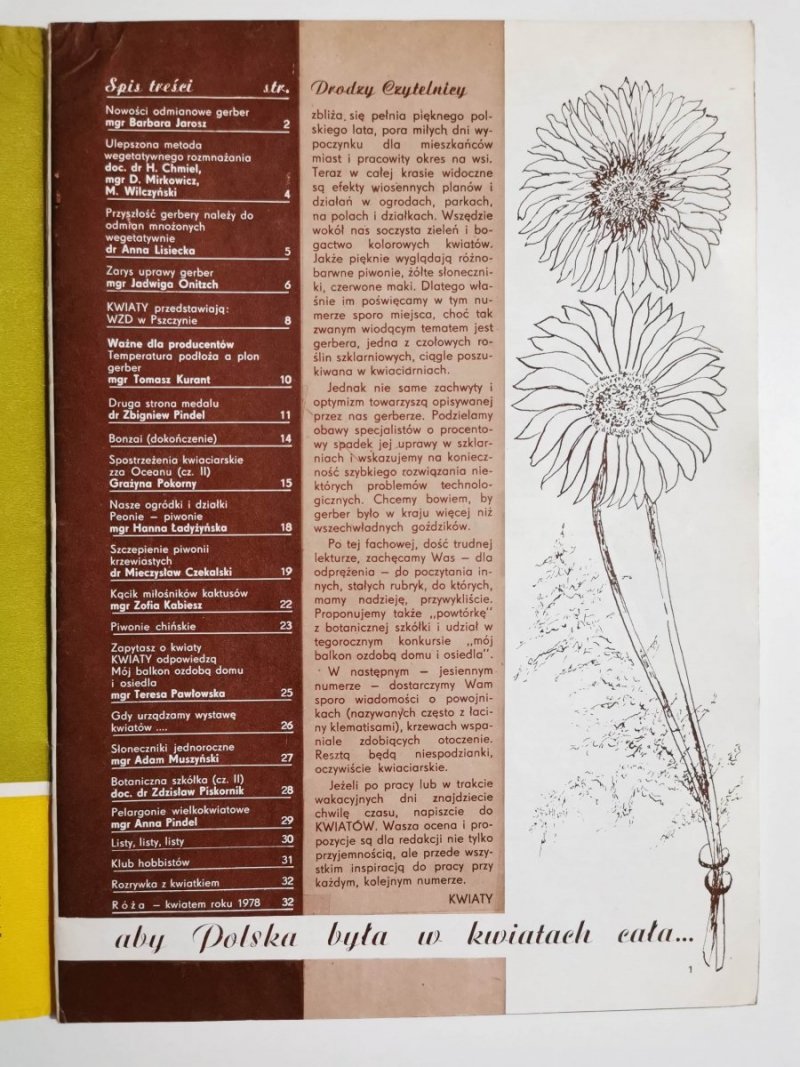 Spis treści str.
Nowości odmianowe gerber
mgr Barbara Jarosz 2
Ulepszona metoda
wegetatywnego rozmnażania
doc. dr H. Chmiel,
mgr D. Mirkowicz,
M. Wilczyński 4
Przyszłość gerbery należy do
odmian mnożonych
wegetatywnie
dr Anna Lisiecka 5
Zarys uprawy gerber
mgr Jadwiga Onitzch 6
KWIATY przedstawiają:
WZD w Pszczynie 8
Ważne dla producentów
Temperatura podłoża a plon
gerber
mgr Tomasz Kurant 10
Druga strona medalu
dr Zbigniew Pindel 11
Bonzai (dokończenie) 14
Spostrzeżenia kwiaciarskie
zza Oceanu (cz. II)
Grażyna Pokorny 15
Nasze ogródki i działki
Peonie – piwonie
mgr Hanna Ładyżyńska 18
Szczepienie piwonii
krzewiastych
dr Mieczysław Czekalski 19
Kącik miłośników kaktusów
mgr Zofia Kabiesz 22
Piwonie chińskie 23
Zapytasz o kwiaty
KWIATY odpowiedzą
Mój balkon ozdobą domu
i osiedla
mgr Teresa Pawłowska 25
Gdy urządzamy wystawę
kwiatów .... 26
Słoneczniki jednoroczne
mgr Adam Muszyński 27
Botaniczna szkółka (cz. II)
doc. dr Zdzisław Piskornik 28
Pelargonie wielkokwiatowe
mgr Anna Pindel 29
Listy, listy, listy 30
Klub hobbistów 31
Rozrywka z kwiatkiem 32
Róża – kwiatem roku 1978 32
Drodzy Czytelnicy
zbliża się pełnia pięknego pol-
skiego lata, pora miłych dni wy-
poczynku dla mieszkańców
miast i pracowity okres na wsi.
Teraz w całej krasie widoczne
są efekty wiosennych planów i
działań w ogrodach, parkach,
na polach i działkach. Wszędzie
wokół nas soczysta zieleń i bo-
gactwo kolorowych kwiatów.
Jakże pięknie wyglądają różno-
barwne piwonie, żółte słoneczni-
ki, czerwone maki. Dlatego wła-
śnie im poświęcamy w tym nu-
merze sporo miejsca, choć tak
zwanym wiodącym tematem jest
gerbera, jedna z czołowych ro-
ślin szklarniowych, ciągle poszu-
kiwana w kwiaciarniach.
Jednak nie same zachwyty i
optymizm towarzyszą opisywanej
przez nas gerberze. Podzielamy
obawy specjalistów o procento-
wy spadek jej uprawy w szklar-
niach i wskazujemy na koniecz-
ność szybkiego rozwiązania nie-
których problemów technolo-
gicznych. Chcemy bowiem, by
gerber było w kraju więcej niż
wszechwładnych goździków.
Po tej fachowej, dość trudnej
lekturze, zachęcamy Was – dla
odprężenia – do poczytania in-
nych, stałych rubryk, do których,
mamy nadzieję, przywykliście.
Proponujemy także „powtórkę"
z botanicznej szkółki i udział w
tegorocznym konkursie „mój
balkon ozdobą domu i osiedla".
W następnym – jesiennym
numerze – dostarczymy Wam
sporo wiadomości o powojni-
kach (nazywanych często z łaci-
ny klematisami), krzewach wspa-
niale zdobiących otoczenie.
Resztą będą niespodzianki,
oczywiście kwiaciarskie.
Jeżeli po pracy lub w trakcie
wakacyjnych dni znajdziecie
chwilę czasu, napiszcie do
KWIATÓW. Wasza ocena i pro-
pozycje są dla redakcji nie tylko
przyjemnością, ale przede wszy-
stkim inspiracją do pracy przy
każdym, kolejnym numerze.
KWIATY
aby Polska była w kwiatach cała...
1